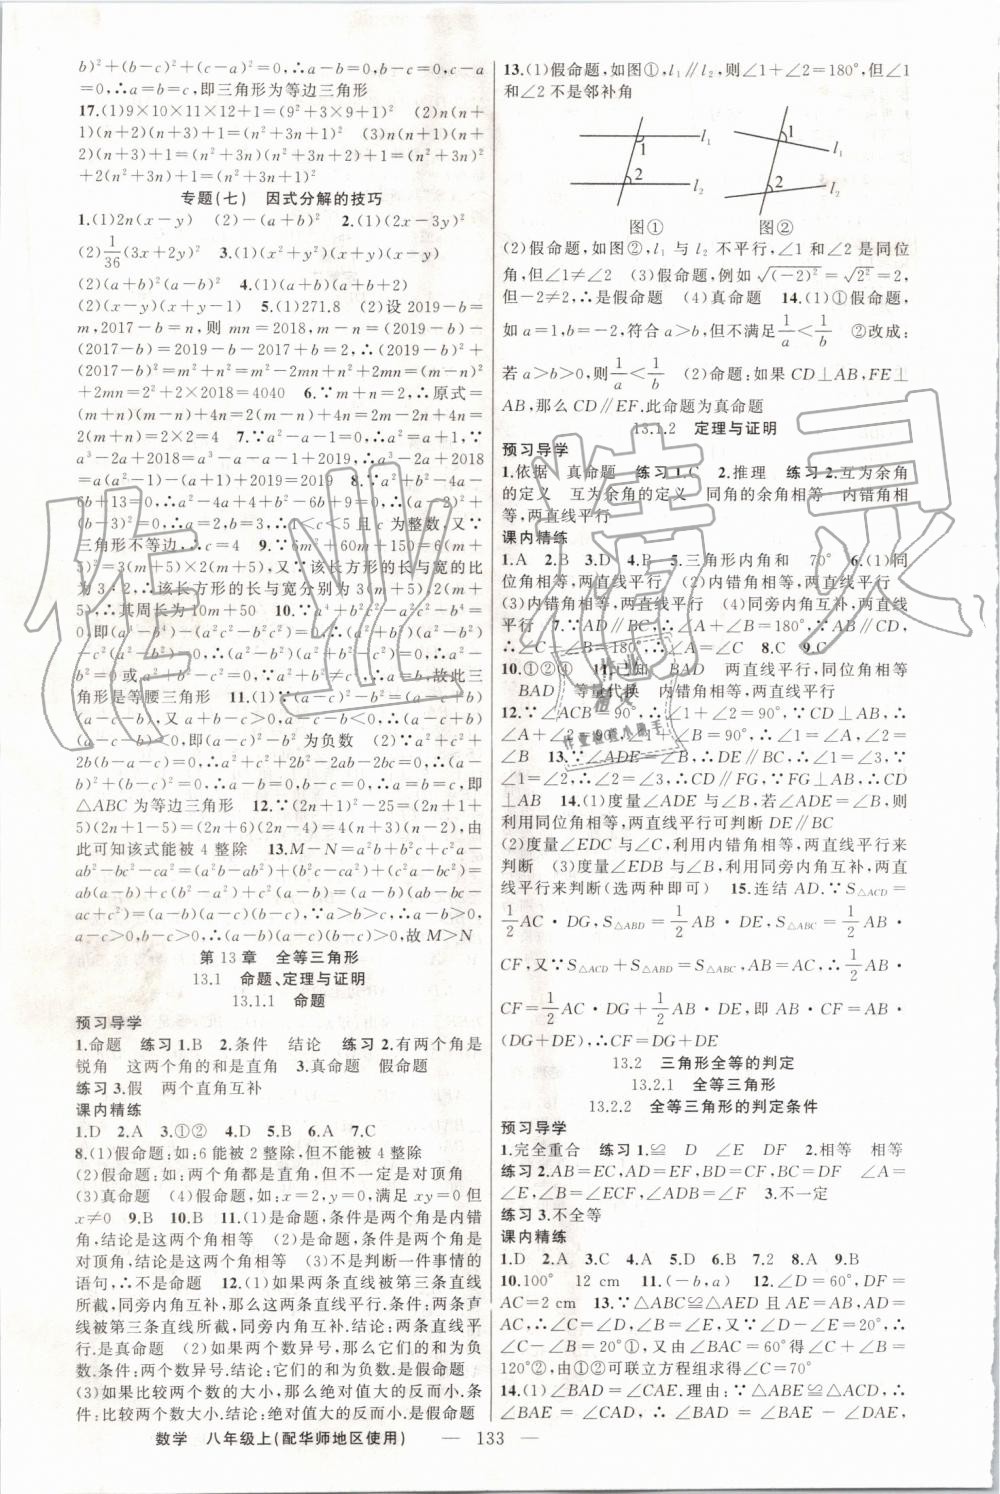 b)²+(b-c)²+(c-a)²=0,∴a-b=0,b-c=0,c-a
=0,∴a=b=c,即三角形为等边三角形
17.(1)9×10×11×12+1=(9²+3×9+1)² (2)n(n
+1)(n+2)(n+3)+1=(n²+3n+1)² (3)n(n+1)(n+
2)(n+3)+1=(n²+3n)(n²+3n+2)+1=(n²+3n)²
+2(n²+3n)+1=(n²+3n+1)²
专题(七) 因式分解的技巧
1.(1)2n(x-y) (2)-(a+b)² 2.(1)(2x-3y)²
(2)1/36(3x+2y)² 3.(1)(x²+y²)(x+y)(x-y)
(2)(a+b)²(a-b)² 4.(1)(a+b)(a+b+2)
(2)(x-y)(x+y-1) 5.(1)271.8 (2)设 2019-b=
m,2017-b=n,则 mn=2018,m-n=(2019-b)-
(2017-b)=2019-b-2017+b=2,∴(2019-b)²+
(2017-b)²=m²+n²=m²-2mn+n²+2mn=(m-n)²+
2mn=2²+2×2018=4040 6.∵m+n=2,∴原式=
(m+n)(m-n)+4n=2(m-n)+4n=2m-2n+4n=
2(m+n)=2×2=4 7.∵a²-a-1=0,∴a²=a+1,∵
a³-2a+2018=a³-a-a-1+2019,∴a³-2a+2018
=a(a²-1)-(a+1)+2019=2019 8.∵a²+b²-4a-
6b+13=0,∴a²-4a+4+b²-6b+9=0,∴(a-2)²+
(b-3)²=0,∴a=2,b=3,∴1<c<5且 c 为整数,又∵
三角形不等边,∴c=4 9.∵6m²+60m+150=6(m+
5)²=3(m+5)×2(m+5),又∵该长方形的长与宽的比
为3∶2,∴该长方形的长与宽分别为3(m+5),2(m+
5),∴其周长为10m+50 10.∵a⁴+b²c²-a²c²-b⁴=
0,即(a⁴-b⁴)-(a²c²-b²c²)=0,∴(a²+b²)(a²-
b²)-c²(a²-b²)=0,∴(a²+b²-c²)(a²-b²)=0,∴a²+b²-c²=
0或 a²-b²=0,∵a²+b²-c²≠0,∴a²-b²=0,∴a=b,故此三
角形是等腰三角形 11.(1)(a-c)²-b²=(a-c+b)
(a-c-b),又 a+b-c>0,a-b-c<0,∴(a-c+b)
(a-c-b)<0,即(a-c)²-b²为负数 (2)∵a²+c²+
2b(b-a-c)=0,∴(a-b)²+(b-c)²=0,∴a=b=c,即
△ABC为等边三角形 12.∵(2n+1)²-25=(2n+1+
5)(2n+1-5)=(2n+6)(2n-4)=4(n+3)(n-2),由
此可知该式能被 4 整除 13.M-N=a²b+b²c+c²a-
ab²-bc²-ca²=(a²b-ab²)+(b²c-ca²)+(c²a-bc²)=
ab(a-b)+c(b²-a²)+c²(a-b)=(a-b)(ab-bc-
ac+c²)=(a-b)(b-c)(a-c),∵a>b>c,∴a-b>0,
a-c>0,b-c>0,∴(a-b)(a-c)(b-c)>0,故 M>N
第 13 章 全等三角形
13.1 命题、定理与证明
13.1.1 命题
预习导学
1.命题 练习 1.B 2.条件 结论 练习 2.有两个角是
锐角 这两个角的和是直角 3.真命题 假命题
练习 3.假 两个直角互补
课内精练
1.D 2.A 3.①② 4.D 5.B 6.A 7.C
8.(1)假命题;如:6能被2整除,但不能被4整除
(2)假命题;如:两个角都是直角,但不一定是对顶角
(3)真命题 (4)假命题,如:x=2,y=0,满足 xy=0 但
x≠0 9.B 10.B 11.(1)是命题,条件是两个角是内错
角,结论是这两个角相等 (2)是命题,条件是两个角是
对顶角,结论是这两个角相等 (3)不是判断一件事情的
语句,∴不是命题 12.(1)如果两条直线被第三条直线
所截,同旁内角互补,那么这两条直线平行.条件:两条直
线被第三条直线所截,同旁内角互补.结论:两条直线平
行.是真命题 (2)如果两个数异号,那么它们的和为负
数.条件:两个数异号.结论:它们的和为负数.是假命题
(3)如果比较两个数的大小,那么绝对值大的反而小.条
件:比较两个数大小.结论:绝对值大的反而小.是假命题
13.(1)假命题,如图①,l₁∥l₂,则∠1+∠2=180°,但∠1
和∠2 不是邻补角
1 l₁ 2 l₂
图①
1 l₁ 2 l₂
图②
(2)假命题,如图②,l₁ 与 l₂ 不平行,∠1 和∠2 是同位
角,但∠1≠∠2 (3)假命题,例如 √(-2)²=√2²=2,
但-2≠2,∴是假命题 (4)真命题 14.(1)①假命题,
如 a=1,b=-2,符合 a>b,但不满足1/a<1/b ②改成:
若 a>b>0,则1/a<1/b (2)命题:如果 CD⊥AB,FE⊥
AB,那么 CD∥EF.此命题为真命题
13.1.2 定理与证明
预习导学
1.依据 真命题 练习 1.C 2.推理 练习 2.互为余角
的定义 互为余角的定义 同角的余角相等 内错角相
等,两直线平行
课内精练
1.A 2.B 3.D 4.B 5.三角形内角和 70° 6.(1)同
位角相等,两直线平行 (2)内错角相等,两直线平行
(3)内错角相等,两直线平行 (4)同旁内角互补,两直线
平行 7.∵AD∥BC,∴∠A+∠B=180°,∵∠A=∠C,
∴∠C+∠B=180°,∴AB∥CD 8.C 9.C
10.①②④ 11.已知 BAD 两直线平行,同位角相等
BAD 等量代换 内错角相等,两直线平行
12.∵∠ACB=90°,∴∠1+∠2=90°,∵CD⊥AB,∴
∠A+∠2=90°,∠1+∠B=90°,∴∠A=∠1,∠2=
∠B 13.∵∠ADE=∠B,∴DE∥BC,∴∠1=∠3,∵
∠1=∠2,∴∠2=∠3,∴CD∥FG,∵FG⊥AB,∴CD
⊥AB 14.(1)度量∠ADE与∠B,若∠ADE=∠B,则
利用同位角相等,两直线平行可判断 DE∥BC
(2)度量∠EDC 与∠C,利用内错角相等,两直线平行来
判断 (3)度量∠EDB与∠B,利用同旁内角互补,两直
线平行来判断(选两种即可) 15.连结 AD.∵S△ACD=
1/2AC·DG,S△ABD=1/2AB·DE,S△ABC=1/2AB·
CF,又∵S△ACD+S△ABD=S△ABC,∴1/2AB·
CF=1/2AC·DG+1/2AB·DE,即 AB·CF=AB·
(DG+DE),∴CF=DG+DE
13.2 三角形全等的判定
13.2.1 全等三角形
13.2.2 全等三角形的判定条件
预习导学
1.完全重合 练习 1.≌ D ∠E DF 2.相等 相等
练习 2.AB=EC,AD=EF,BD=CF ∠A=
∠E,∠B=∠ECF,∠ADB=∠F 3.不一定
练习 3.不全等
课内精练
1.D 2.A 3.C 4.A 5.D 6.B 7.2 8.A 9.B
10.100° 12 cm 11.(-b,a) 12.∠D=60°,DF=
AC=2 cm 13.∵△ABC≌△AED且 AE=AB,AD=
AC,∴∠B=∠E,∠C=∠D,∵∠D-∠E=20°,∴
∠C-∠B=20°①,又由∠BAC=60°得∠C+∠B=
120°②,由①②可联立方程组求得∠C=70°
14.(1)∠BAD=∠CAE.理由:∵△ABE≌△ACD,∴
∠BAE=∠CAD,∴∠BAE-∠DAE=∠CAD-
数学 八年级上(配华师地区使用) — 133 —
作业精灵
作业检查小助手